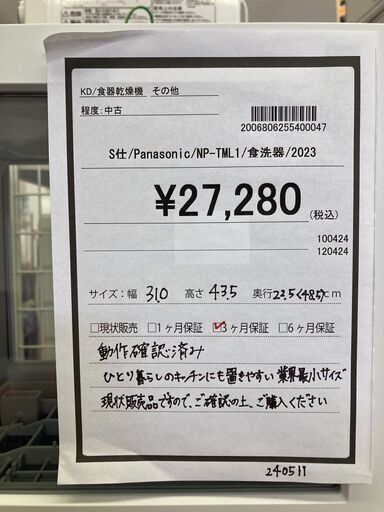 KD/食器乾燥機 その他
程度:中古
2006806255400047
S仕/Panasonic/NP-TML1/食洗器/2023
¥27,280(税込)
100424
120424
サイズ:幅 31.0 高さ 43.5 奥行 22.5(48.5)cm
□現状販売 □1ヶ月保証 ☑3ヶ月保証 □6ヶ月保証
動作確認済み
ひとり暮らしのキッチンにも置きやすい業界最小サイズ
現状販売品ですので、ご確認の上、ご購入ください
240511